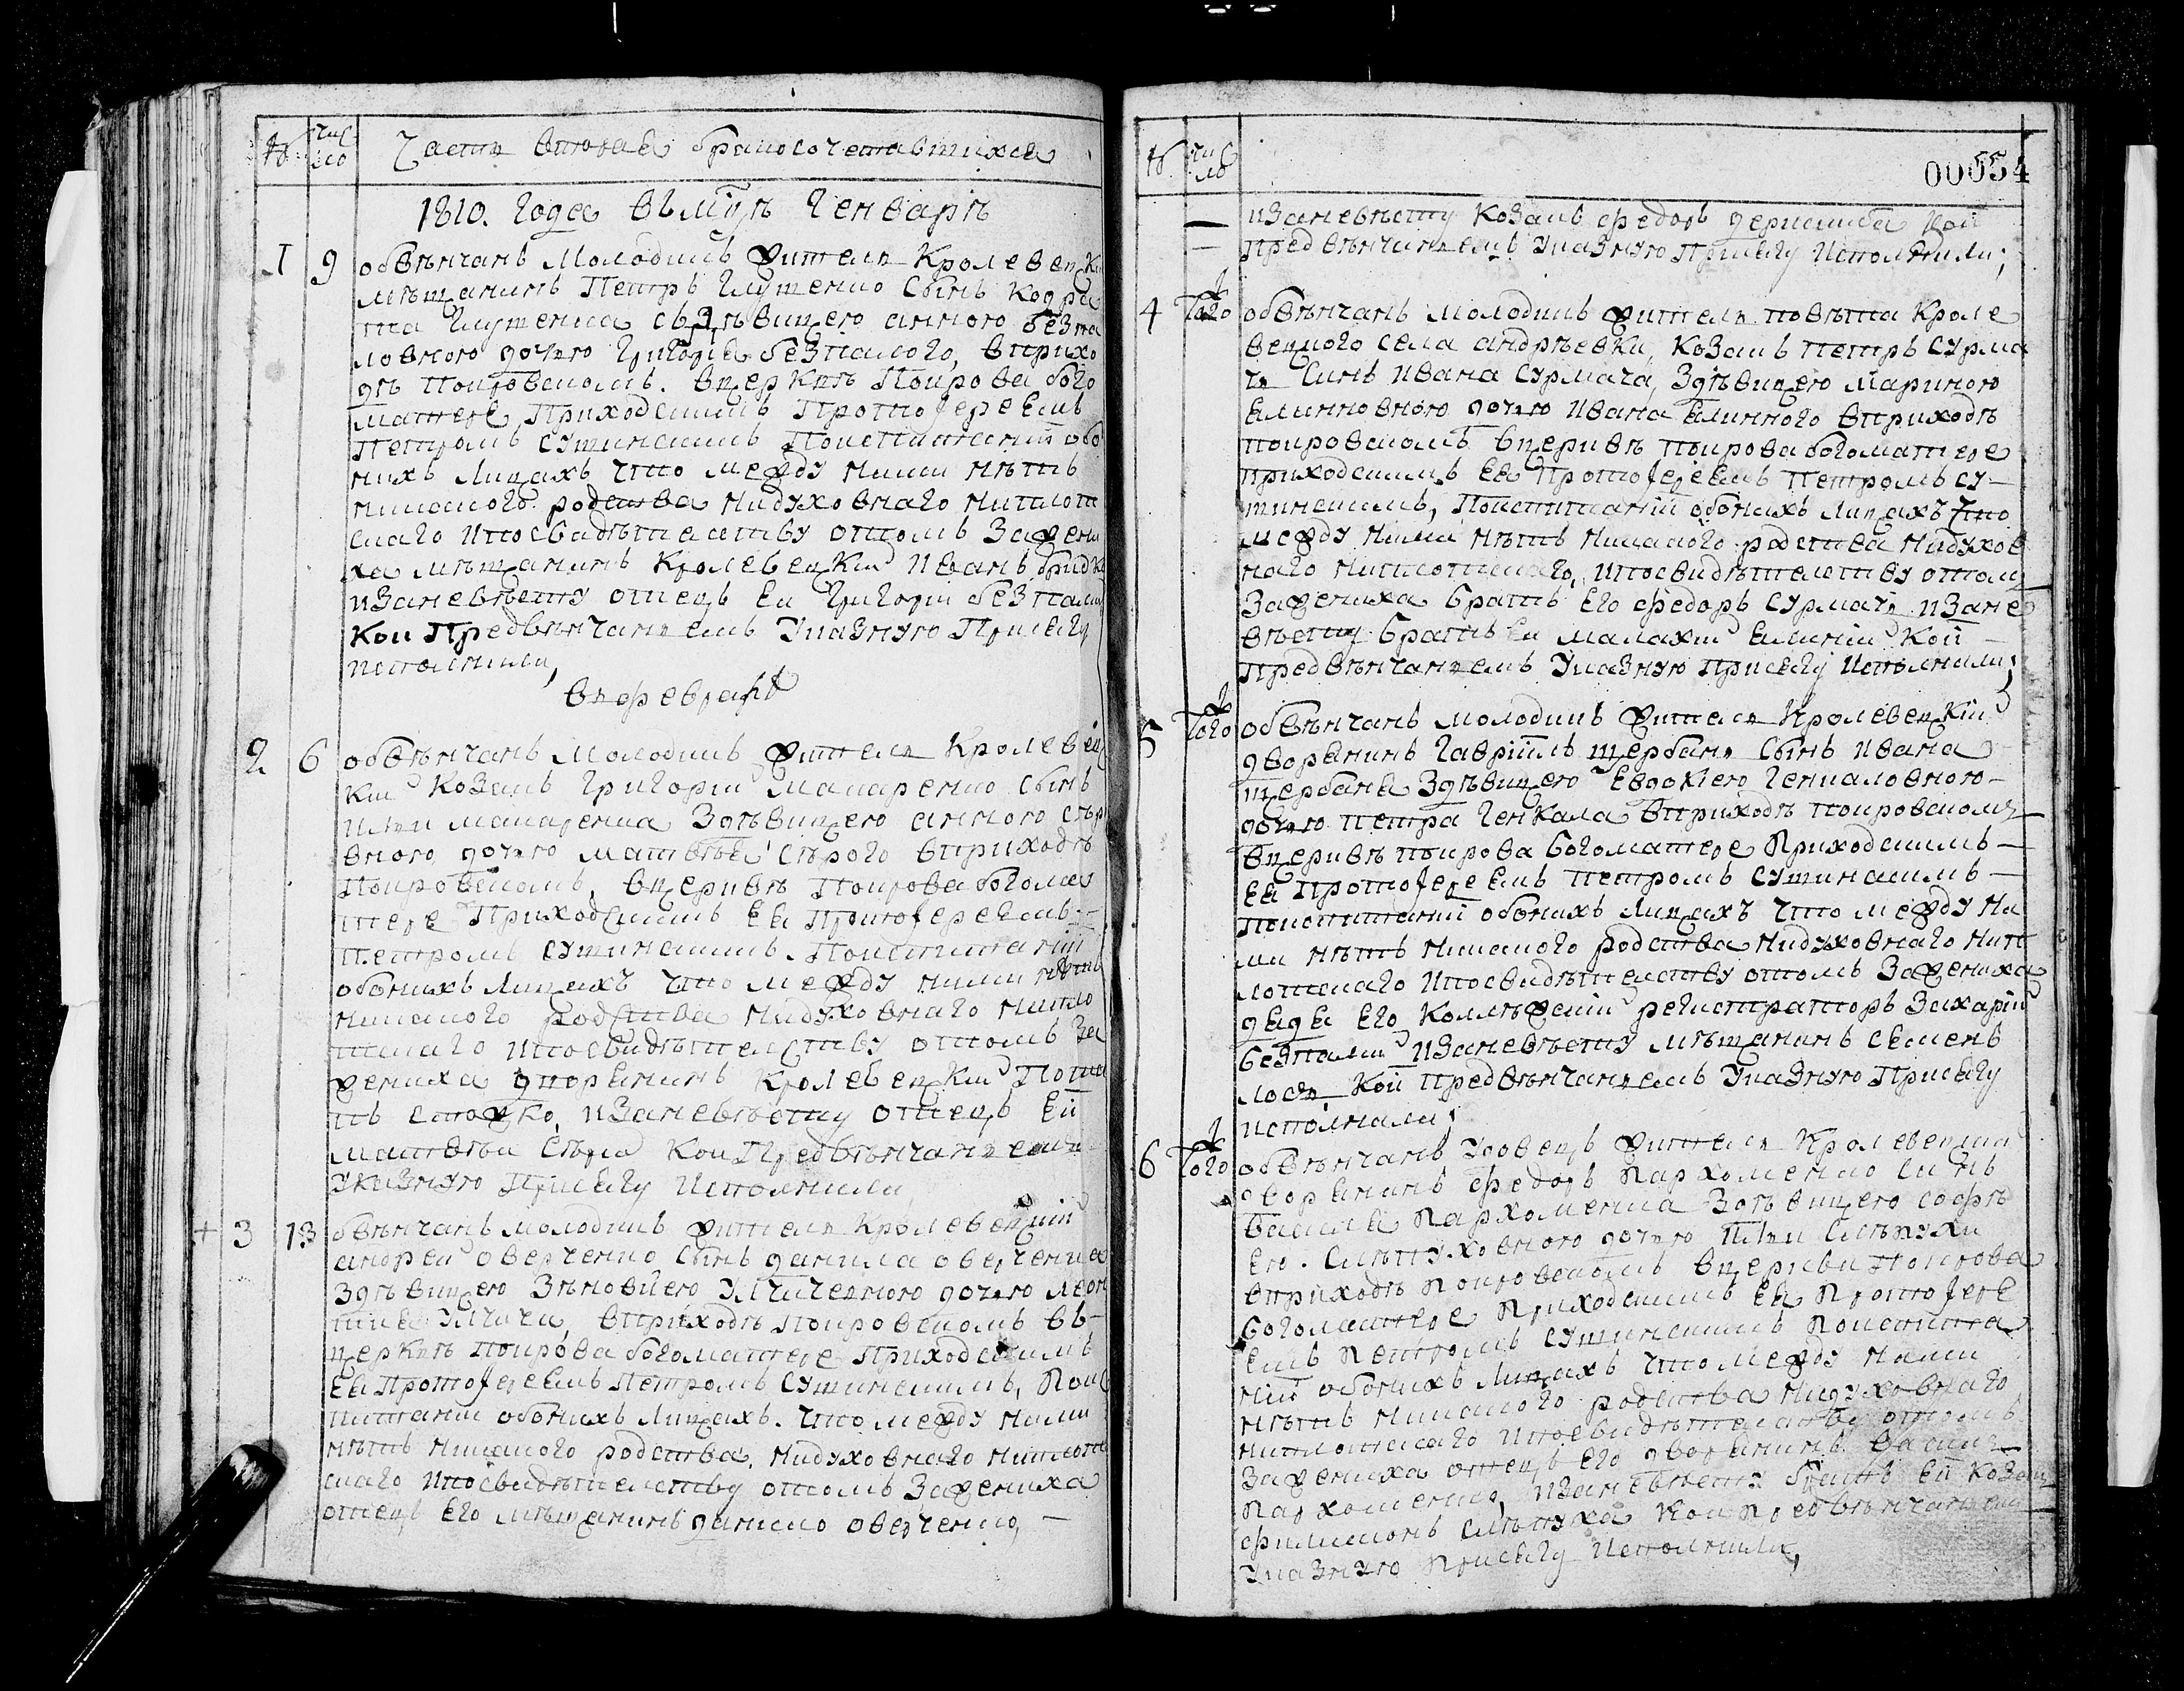 № чис
ло
Часть вторая бракосочетавшихся
1810. Года вмцѣ Генварѣ
1 9 обвѣнчанъ Молодикъ житель Кролевецки
мѣщанинъ Петръ Глущенко Сынъ Кодра
та Глущенка сьздѣвицею анною безпа
ловною дочкю Григорія безпалого, вприхо
дѣ Покровскомъ. Вцеркнѣ Покрова бого
матере Приходскимъ Протоіереемъ
Петромъ Поиспитаніи обо
нихъ лицахъ что между ними нѣтъ
никакого родства нидуховнаго ниплот
скаго Ипосвидѣтелству отомъ Зажени
ха мѣщанинъ Кролевецкій Иванъ
иЗаневѣсту отецъ Ей Григорій безпали
кои Предвѣнчаніемъ Указную Присягу
исполнили,
вьфевралѣ
2 6 обвѣнчанъ Молодикъ житель Кролевец
кій Козакъ Григорій Макаренко Сынъ
Ильи Макаренка Здѣвицею анною Сѣр
вною дочкю матвѣя Сѣрого вприходѣ
Покровскомъ, вцерквѣ Покрова богома
тере Приходскимъ Ея Протоіереемъ
Петромъ Поиспитаніи
обонихъ Лицахъ что между ними нѣтъ
никакого родства нидуховнаго нипло
тскаго Ипосвидѣтелству отомъ За
жениха дворянинъ Кролевецкій
Стожко, иЗаневѣсту отецъ Ей
матвѣй Сѣрій Кои Предвѣнчаніемъ
Указную Присягу Исполнили
+ 3 13 обвѣнчанъ молодикъ житель Кролевецкій
андрей оверченко сынъ данила оверченка
Здѣвицею Зѣновіею дочкю
вприходѣ Покровскомъ вь
церкнѣ покрова богоматере Приходскимъ
Ея Протоіереемъ Петромъ Поис
питаніи обонихъ Лицахъ. что между ними
нѣтъ никакого родства, нидуховнаго ниплот
скаго Ипосвидѣтелству отомъ Зажениха
отецъ Его мѣщанинъ данило оверченко, —
№ чис
ло
00554
— иЗаневѣсту Козакъ федоръ Кои
— предвѣнчаніемъ указную присягу исполнили;
4 Того обвѣнчанъ молодикъ житель повѣта Кроле
вецкого села андрѣевки, Козакъ Петръ Сурма
чъ Синъ Ивана Сурмача, Здѣвицею Мариною
дочкю Ивана вприходѣ
покровскомъ вцерквѣ покрова богоматере
приходскимъ Ея Протоіереемъ Петромъ
Поиспитаніи обонихъ лицахъ что
между ними нѣтъ никакого родства нидухов
наго ниплотскаго, ипосвидѣтелству отомъ
Зажениха братъ Его федоръ Сурмачъ иЗане
вѣсту братъ Ея малахій Кои —
Предвѣнчаніемъ Указную Присягу Исполнили;
5 Того обвѣнчанъ молодикъ житель Кролевецкій
дворянинъ Гавріилъ щербань Сынъ Ивана
щербаня Здѣвицею Евдокіею Генкаловною —
дочкю петра Генкала вприходѣ покровскомъ
вцерквѣ покрова богоматере Приходскимъ —
Ея Протоіереемъ Петромъ —
Поиспитаніи обонихъ Лицахъ что между ни
ми нѣтъ никакого родства нидуховнаго нип
лотскаго Ипосвидѣтелству отомъ Зажениха
дядя Его Коллѣжскій регистраторъ Захарій
безпалій иЗаневѣсту мѣщанинъ Семенъ
лось, Кои предвѣнчаніемъ Указную Присягу
исполнили;
6 Того обвѣнчанъ Удовецъ житель Кролевецкій
дворянинъ федоръ Пархоменко Синъ
василя Пархоменка Здѣвицею софѣ
ею. Слѣпуховною дочкю Ильи Слѣпухи
вприходѣ Покровскомъ вцеркви Покрова
богоматере Приходскимъ Ея Протоіере
емъ Петромъ Поиспита
ніи обонихъ Лицахъ что между ними
нѣтъ никакого родства нидуховнаго
ниплотскаго Ипосвидѣтелству отомъ
Зажениха отецъ Его дворянинъ василь
Пархоменко, иЗаневѣсту братъ Ей Козакъ
филимонъ Слѣпуха Кои Предвѣнчаніемъ
Указную Присягу Исполнили,